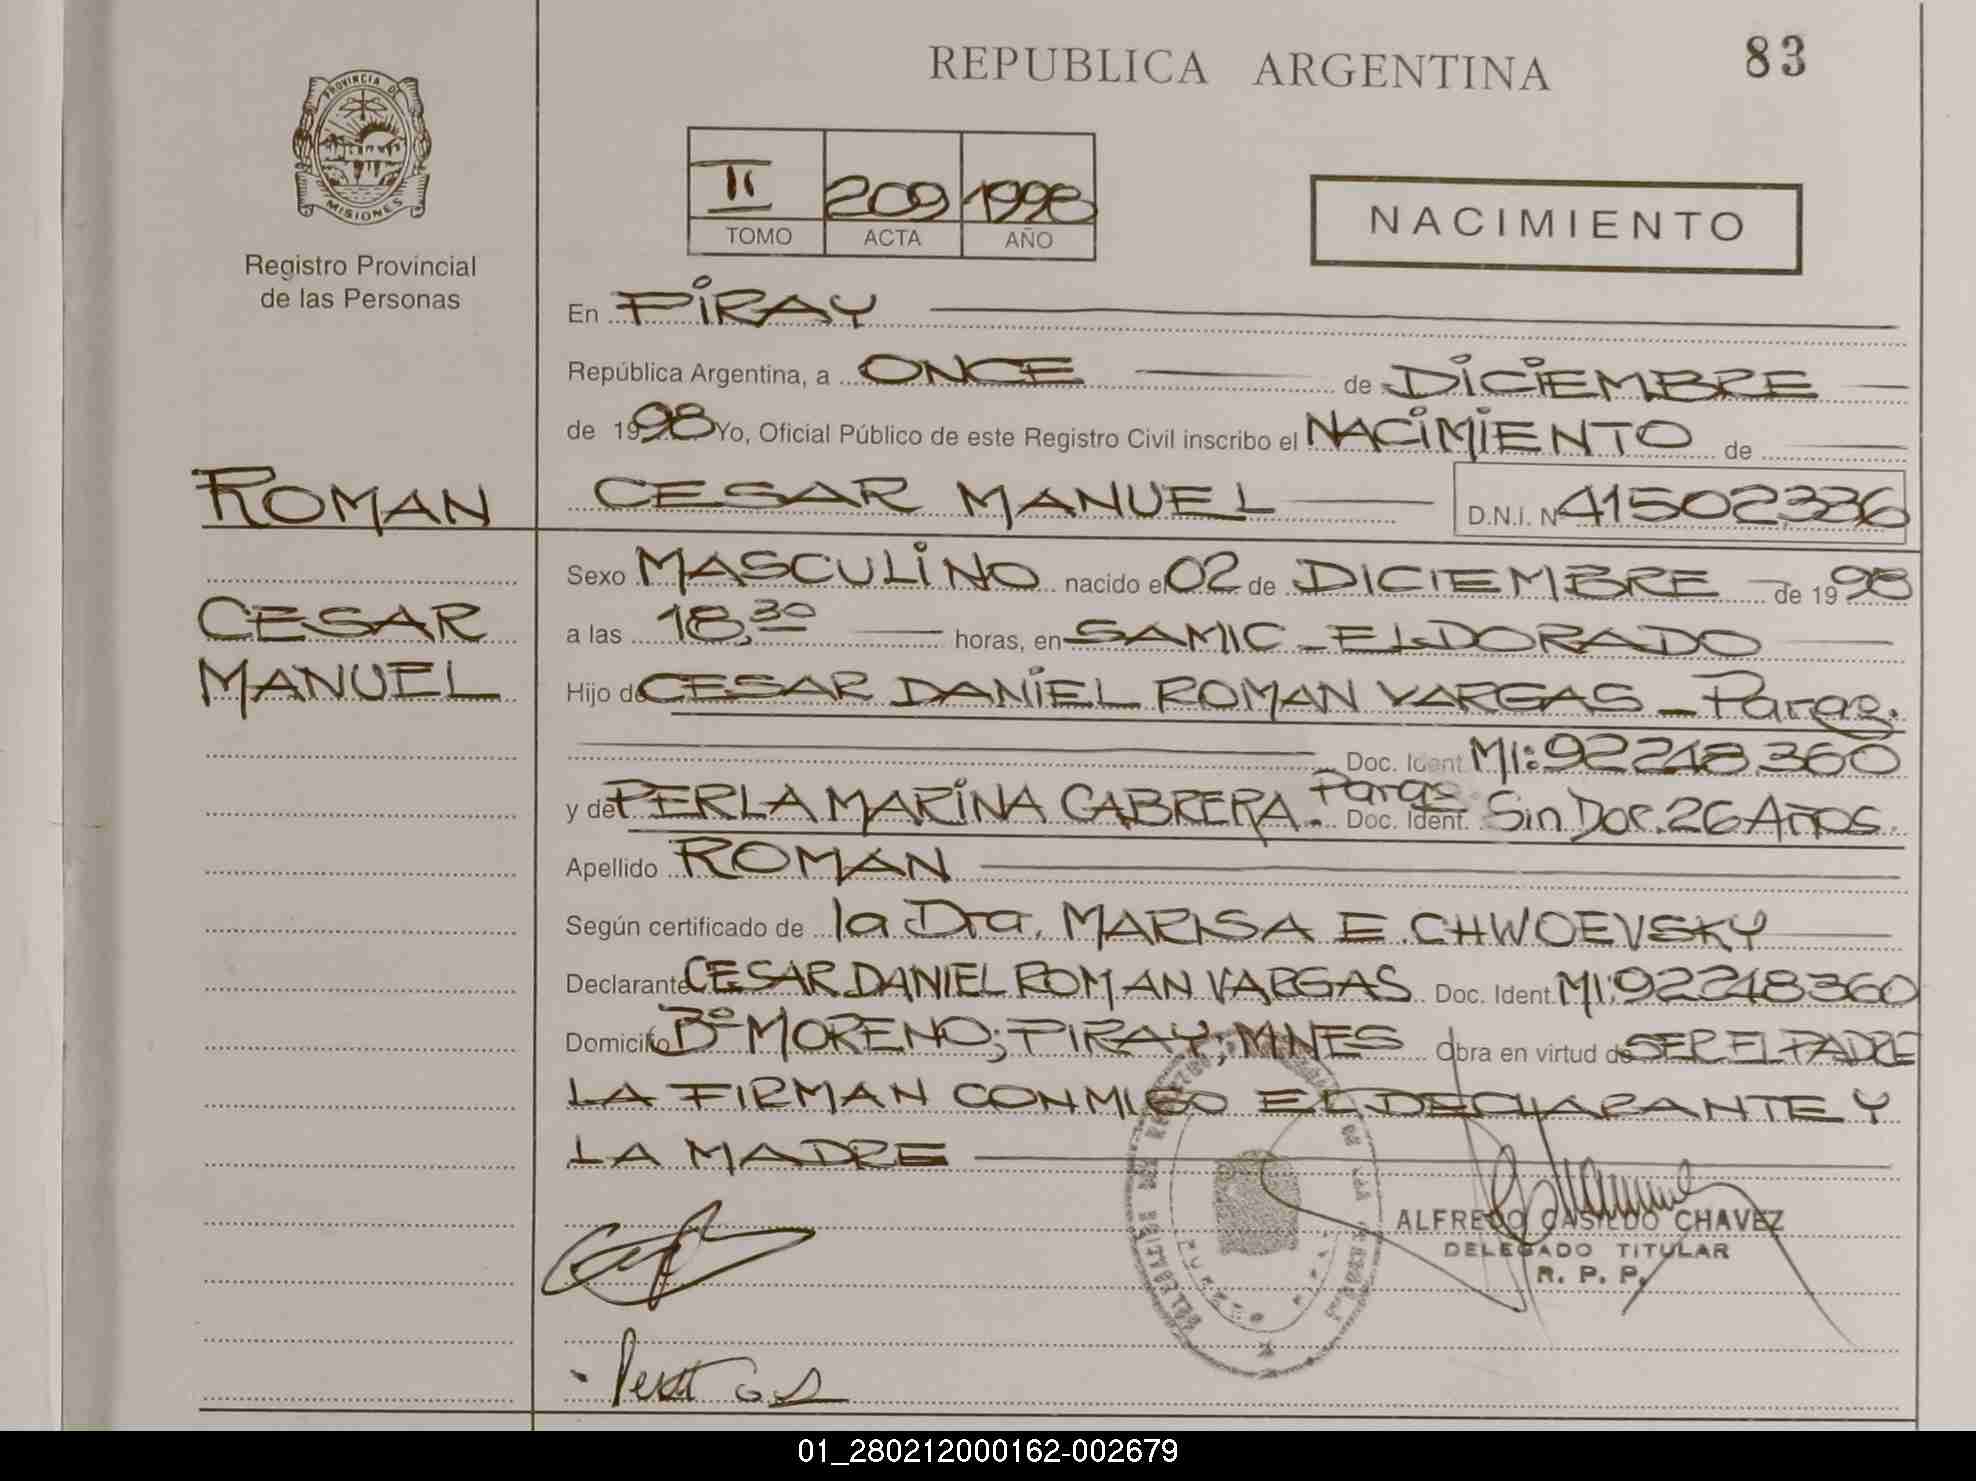 REPUBLICA ARGENTINA
83
PROVINCIA DE
MISIONES
Registro Provincial
de las Personas
II 209 1998
TOMO ACTA AÑO
NACIMIENTO
En PIRAY
República Argentina, a ONCE de DICIEMBRE
de 1998 Yo, Oficial Público de este Registro Civil inscribo el NACIMIENTO de
ROMAN
CESAR MANUEL D.N.I. N 41502336
CESAR
MANUEL
Sexo MASCULINO nacido el 02 de DICIEMBRE de 1998
a las 18,30 horas, en SAMIC - ELDORADO
Hijo de CESAR DANIEL ROMAN VARGAS - Parag.
Doc. Ident MI: 92248360
y de PERLA MARINA CABRERA. Parag Doc. Ident. Sin Doc. 26 Años.
Apellido ROMAN
Según certificado de la Dra. MARISA E. CHWOEVSKY
Declarante CESAR DANIEL ROMAN VARGAS Doc. Ident. MI: 92248360
Domicilio Bº MORENO; PIRAY; MNES Obra en virtud de SER EL PADRE
LA FIRMAN CONMIGO EL DECLARANTE Y
LA MADRE
ALFREDO CASILDO CHAVEZ
DELEGADO TITULAR
R. P. P.
01_280212000162-002679